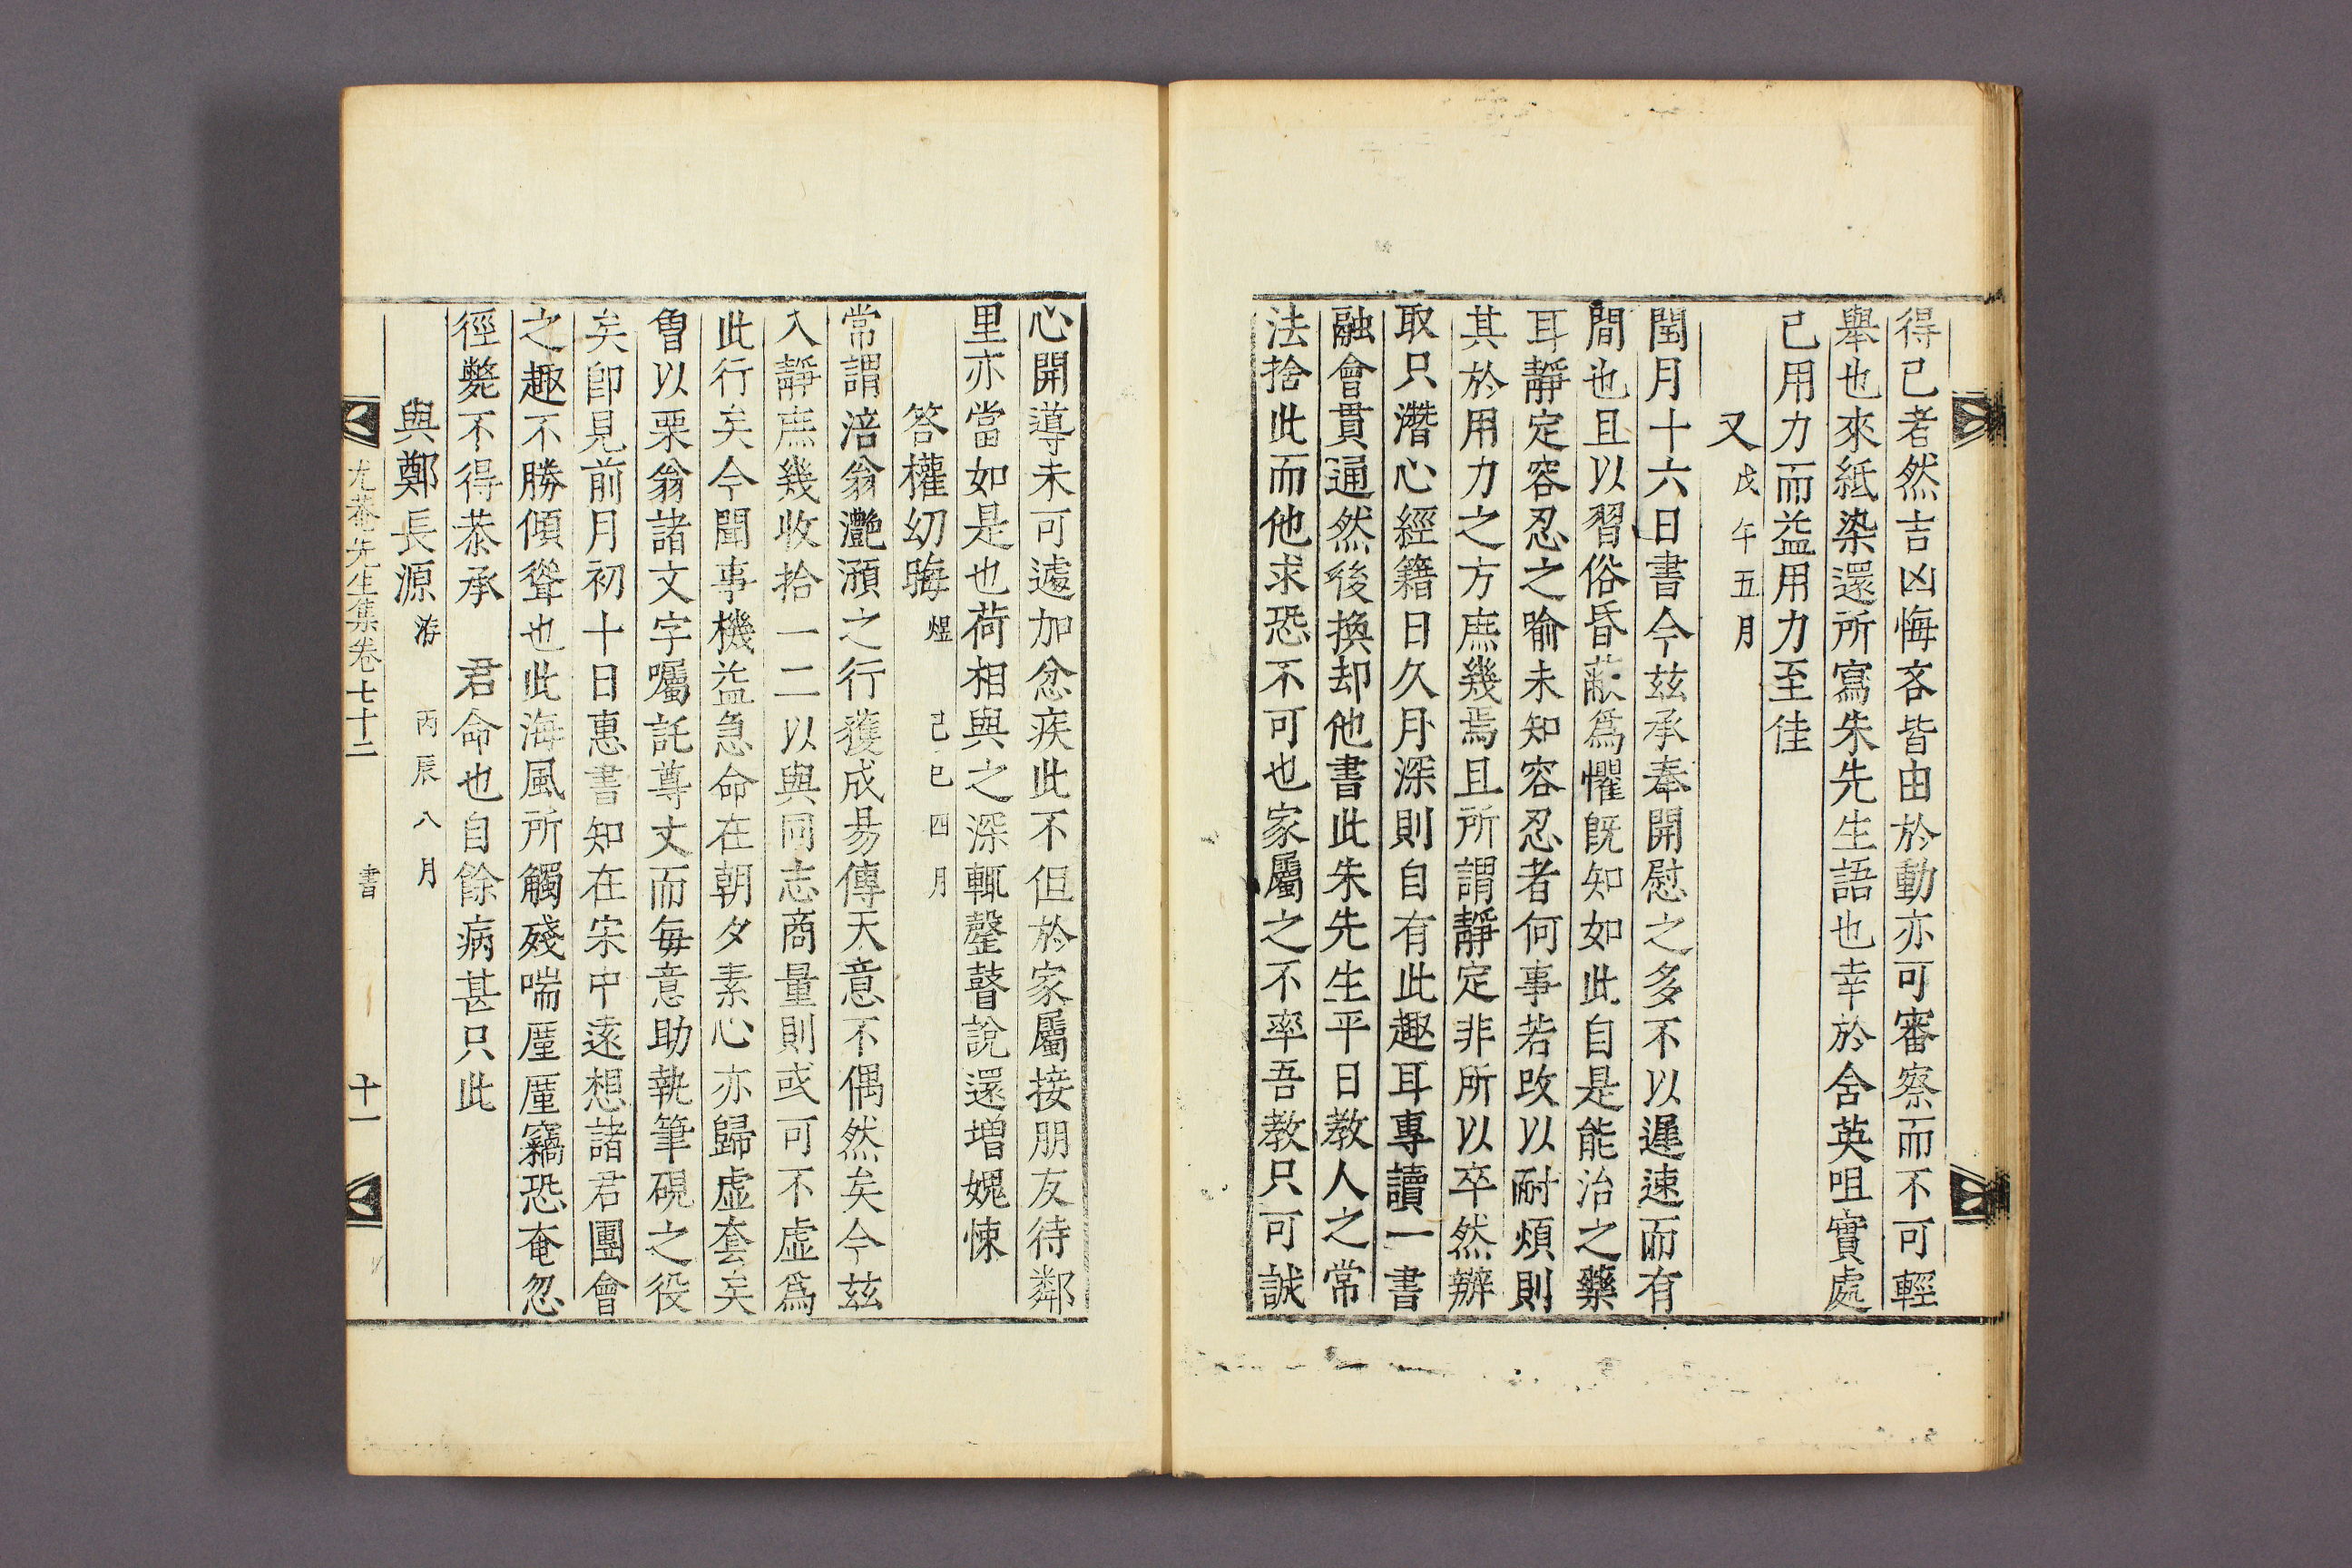 得已者然吉凶悔吝皆由於動亦可審察而不可輕
擧也來紙染還所寫朱先生語也幸於含英咀實處
已用力而益用力至佳
又戊午五月
閏月十六日書今玆承奉開慰之多不以遲速而有
間也且以習俗昏蔽爲懼旣知如此自是能治之藥
耳靜定容忍之喻未知容忍者何事若改以耐煩則
其於用力之方庶幾焉且所謂靜定非所以卒然辦
取只潛心經籍日久月深則自有此趣耳專讀一書
融會貫通然後換却他書此朱先生平日教人之常
法捨此而他求恐不可也家屬之不率吾教只可誠
心開導未可遽加忿疾此不但於家屬接朋友待鄰
里亦當如是也荷相與之深輒罄瞽說還增媿悚
答權幼晦煜 己巳四月
常謂涪翁灧澦之行獲成易傳天意不偶然矣今玆
入靜庶幾收拾一二以與同志商量則或可不虛爲
此行矣今聞事機益急命在朝夕素心亦歸虛套矣
曾以栗翁諸文字囑託尊丈而每意助執筆硯之役
矣卽見前月初十日惠書知在宋中遠想諸君團會
之趣不勝傾聳也此海風所觸殘喘厪厪竊恐奄忽
徑斃不得恭承 君命也自餘病甚只此
與鄭長源游 丙辰八月
尤菴先生集卷七十二 書 十一